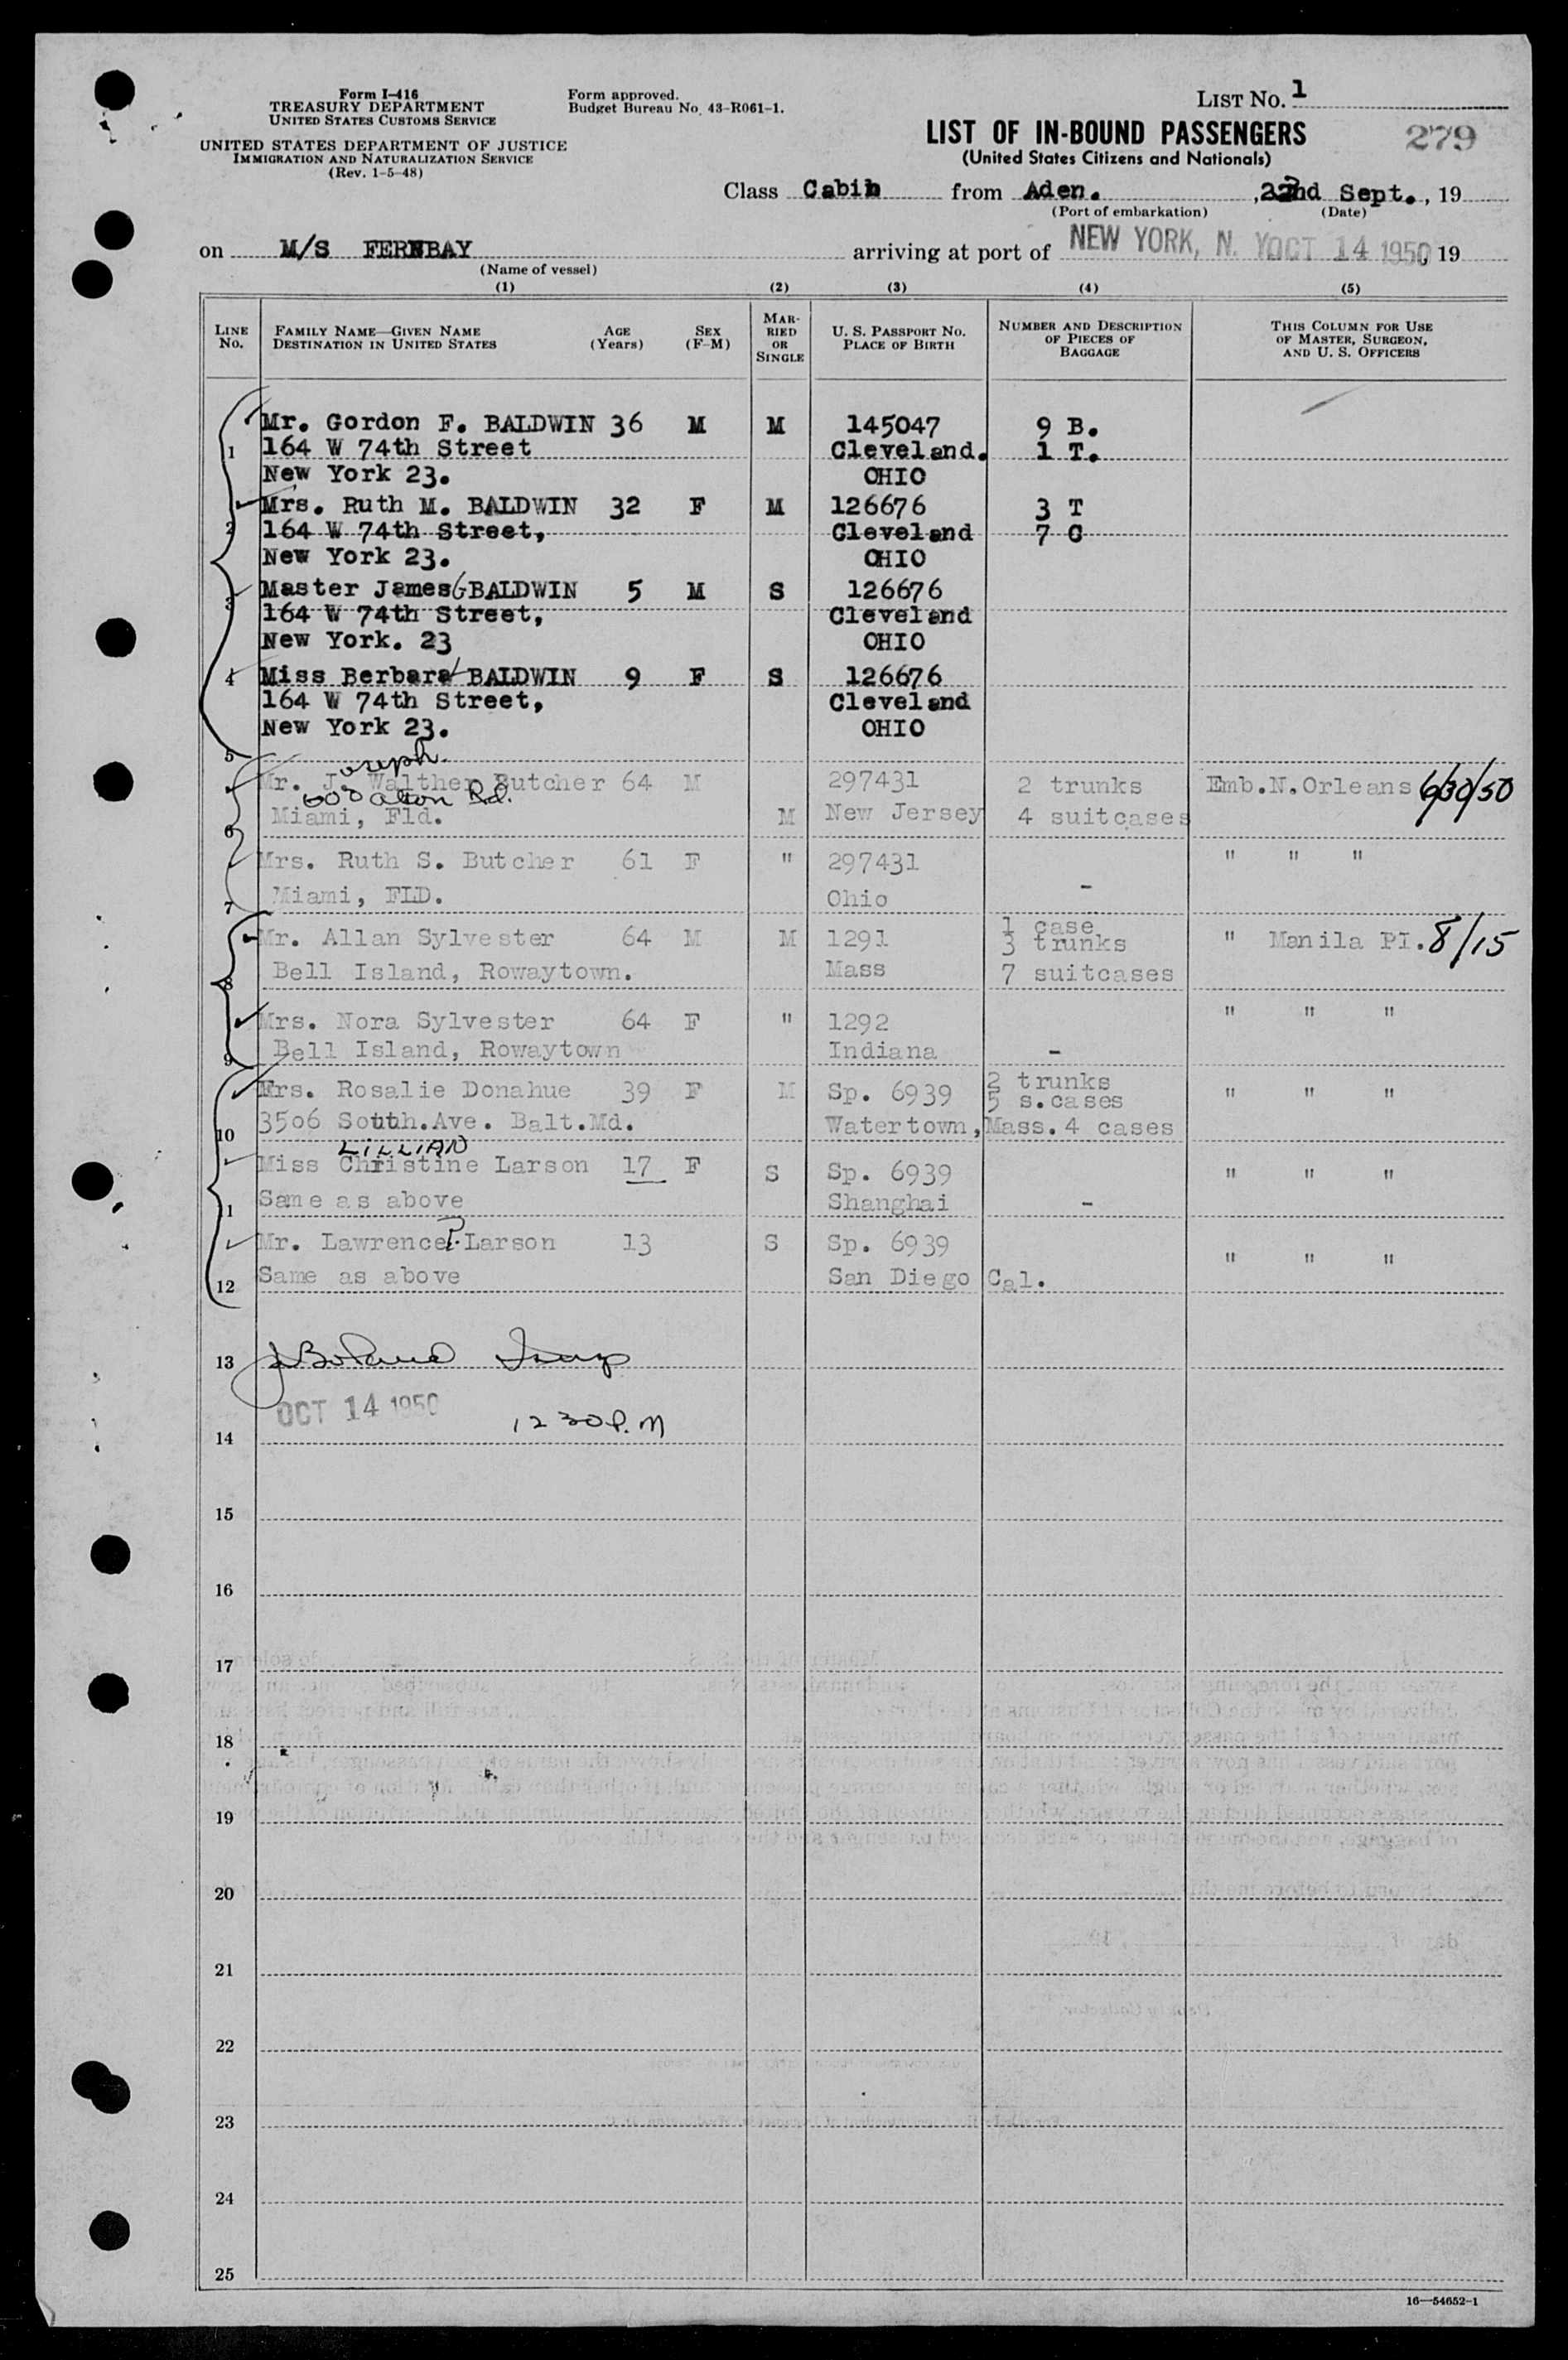 Form I-416
TREASURY DEPARTMENT
UNITED STATES CUSTOMS SERVICE
UNITED STATES DEPARTMENT OF JUSTICE
IMMIGRATION AND NATURALIZATION SERVICE
(Rev. 1-5-48)
Form approved.
Budget Bureau No. 43-R061-1.
LIST No. 1
LIST OF IN-BOUND PASSENGERS
(United States Citizens and Nationals)
279
Class Cabin from Aden. , 22nd Sept. , 19
(Port of embarkation) (Date)
on M/S FERNBAY arriving at port of NEW YORK, N. Y. OCT 14 1950, 19
(Name of vessel)
(1) (2) (3) (4) (5)
LINE No. FAMILY NAME—GIVEN NAME DESTINATION IN UNITED STATES AGE (Years) SEX (F-M) MARRIED OR SINGLE U. S. PASSPORT NO. PLACE OF BIRTH NUMBER AND DESCRIPTION OF PIECES OF BAGGAGE THIS COLUMN FOR USE OF MASTER, SURGEON, AND U. S. OFFICERS
Mr. Gordon F. BALDWIN 36 M M 145047 9 B.
1 164 W 74th Street Cleveland. 1 T.
New York 23. OHIO
Mrs. Ruth M. BALDWIN 32 F M 126676 3 T
2 164 W 74th Street, Cleveland 7 C
New York 23. OHIO
Master James G BALDWIN 5 M S 126676
3 164 W 74th Street, Cleveland
New York. 23 OHIO
4 Miss Berbara L BALDWIN 9 F S 126676
164 W 74th Street, Cleveland
New York 23. OHIO
5
oseph
Mr. J. Walther Butcher 64 M 297431 2 trunks Emb.N.Orleans 6/30/50
600 Alton Rd.
6 Miami, Fld. M New Jersey 4 suitcases
Mrs. Ruth S. Butcher 61 F " 297431 " " "
7 Miami, FLD. Ohio -
1 case
Mr. Allan Sylvester 64 M M 1291 3 trunks " Manila PI. 8/15
8 Bell Island, Rowaytown. Mass 7 suitcases
Mrs. Nora Sylvester 64 F " 1292 " " "
9 Bell Island, Rowaytown Indiana -
2 trunks
Mrs. Rosalie Donahue 39 F M Sp. 6939 5 s.cases " " "
10 3506 South.Ave. Balt.Md. Watertown, Mass. 4 cases
LILLIAN
Miss Christine Larson 17 F S Sp. 6939 " " "
11 Same as above Shanghai -
Mr. Lawrence P. Larson 13 S Sp. 6939 " " "
12 Same as above San Diego Cal.
13
OCT 14 1950 12 30 P.M
14
15
16
17
18
19
20
21
22
23
24
25
16—54652-1